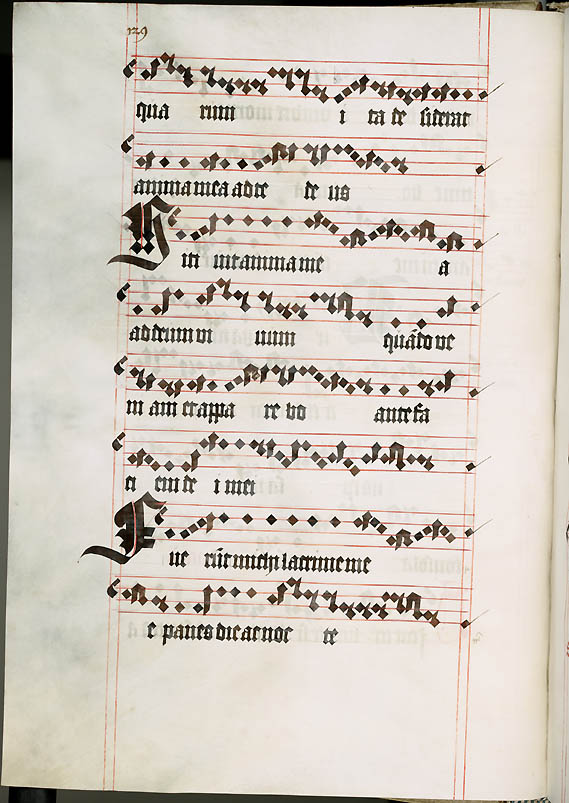 129
qua rum i ta de siderat
anima mea ad te de us
S iti uit anima me a
ad deum ui uum quādo ve
ni am et appa re bo ante fa
ci em de i mei
F ue rūt michi lacrime me
e panes die ac noc te